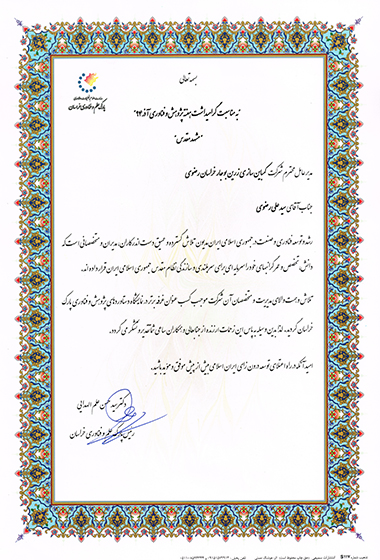 بسمه تعالی
پارک علم و فناوری خراسان
به مناسبت گرامیداشت هفته پژوهش و فناوری آذر ۹۴
"مشهد مقدس"
مدیر عامل محترم شرکت کمباین سازی زرین بوجار خراسان رضوی
جناب آقای سید علی رضوی
رشد و توسعه فناوری و صنعت در جمهوری اسلامی ایران مدیون تلاش گسترده و عمیق دست اندرکاران، مدیران و متخصصانی است که
دانش، تخصص و عمر گرانبهای خود را سرمایه ای برای سربلندی و سازندگی نظام مقدس جمهوری اسلامی ایران قرار داده اند.
تلاش و همت والای مدیریت و متخصصان آن شرکت موجب کسب عنوان غرفه برتر در نمایشگاه دستاوردهای پژوهش و فناوری پارک
خراسان گردید. لذا بدین وسیله به پاس این زحمات ارزنده از جنابعالی و همکاران سامی شما تقدیر و تشکر می گردد.
امید آنکه در راه اعتلای توسعه درون زای ایران اسلامی بیش از پیش موفق و موید باشید.
دکتر سید حسن علم الهدایی
رئیس پارک علم و فناوری خراسان